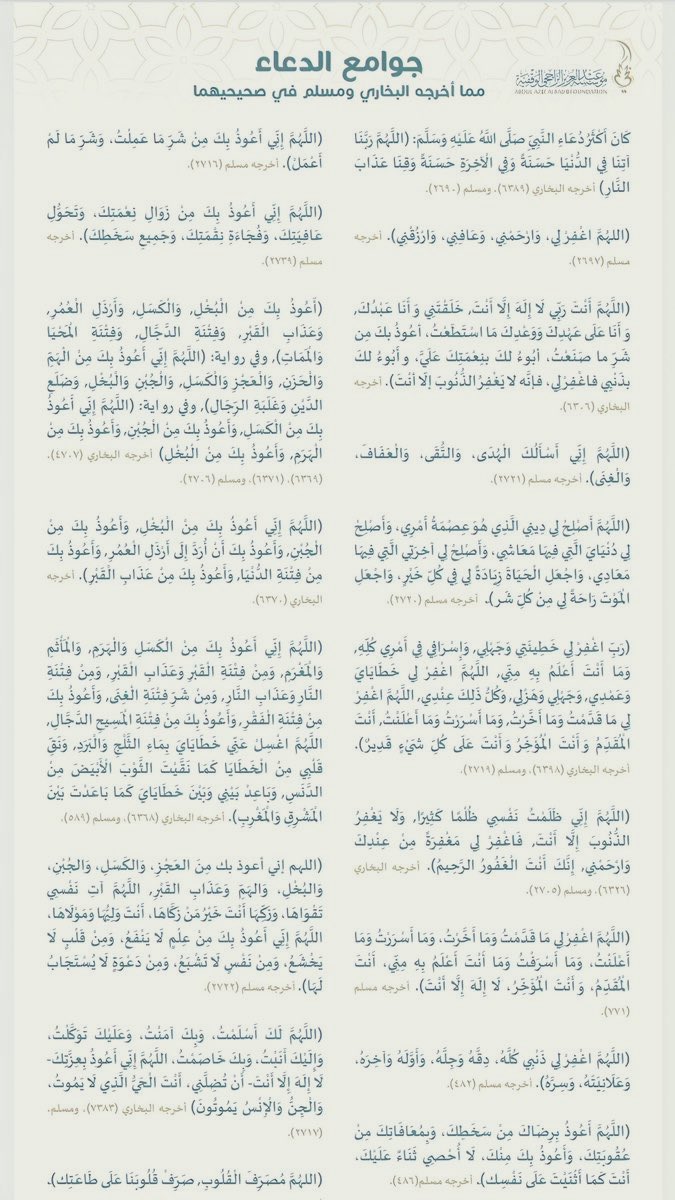 جوامع الدعاء
مما أخرجه البخاري ومسلم في صحيحيهما
مؤسسة عبدالعزيز الراجحي الوقفية
كَانَ أَكْثَرُ دُعَاءِ النَّبِيِّ صَلَّى اللَّهُ عَلَيْهِ وَسَلَّمَ: (اللَّهُمَّ رَبَّنَا
آتِنَا فِي الدُّنْيَا حَسَنَةً وَفِي الْآخِرَةِ حَسَنَةً وَقِنَا عَذَابَ
النَّارِ) أخرجه البخاري (٦٣٨٩)، ومسلم (٢٦٩٠).
(اللهُمَّ اغْفِرْ لِي، وَارْحَمْنِي، وَعَافِنِي، وَارْزُقْنِي). أخرجه
مسلم (٢٦٩٧).
(اللَّهُمَّ أَنْتَ رَبِّي لَا إِلَهَ إِلَّا أَنْتَ, خَلَقْتَنِي وَأَنَا عَبْدُكَ,
وَأَنَا عَلَى عَهْدِكَ وَوَعْدِكَ مَا اسْتَطَعْتُ، أعُوذُ بكَ مِن
شَرِّ ما صَنَعْتُ، أبُوءُ لكَ بنِعْمَتِكَ عَلَيَّ، وأَبُوءُ لكَ
بذَنْبِي فاغْفِرْ لِي، فإنَّه لا يَغْفِرُ الذُّنُوبَ إلَّا أنْتَ). أخرجه
البخاري (٦٣٠٦).
(اللَّهُمَّ إِنِّي أَسْأَلُكَ الْهُدَى، وَالتُّقَى، وَالْعَفَافَ،
وَالْغِنَى). أخرجه مسلم (٢٧٢١).
(اللَّهُمَّ أَصْلِحْ لِي دِينِي الَّذِي هُوَ عِصْمَةُ أَمْرِي، وَأَصْلِحْ
لِي دُنْيَايَ الَّتِي فِيهَا مَعَاشِي، وَأَصْلِحْ لِي آخِرَتِي الَّتِي فِيهَا
مَعَادِي، وَاجْعَلِ الْحَيَاةَ زِيَادَةً لِي فِي كُلِّ خَيْرٍ، وَاجْعَلِ
الْمَوْتَ رَاحَةً لِي مِنْ كُلِّ شَر). أخرجه مسلم (٢٧٢٠).
(رَبِّ اغْفِرْ لِي خَطِيئَتِي وَجَهْلِي, وَإِسْرَافِي فِي أَمْرِي كُلِّهِ,
وَمَا أَنْتَ أَعْلَمُ بِهِ مِنِّي, اللَّهُمَّ اغْفِرْ لِي خَطَايَايَ
وَعَمْدِي, وَجَهْلِي وَهَزْلِي, وَكُلُّ ذَلِكَ عِنْدِي, اللَّهُمَّ اغْفِرْ
لِي مَا قَدَّمْتُ وَمَا أَخَّرْتُ, وَمَا أَسْرَرْتُ وَمَا أَعْلَنْتُ, أَنْتَ
الْمُقَدِّمُ وَأَنْتَ الْمُؤَخِّرُ وَأَنْتَ عَلَى كُلِّ شَيْءٍ قَدِيرٌ).
أخرجه البخاري (٦٣٩٨)، ومسلم (٢٧١٩).
(اللَّهُمَّ إِنِّي ظَلَمْتُ نَفْسِي ظُلْمًا كَثِيرًا, وَلَا يَغْفِرُ
الذُّنُوبَ إِلَّا أَنْتَ, فَاغْفِرْ لِي مَغْفِرَةً مِنْ عِنْدِكَ
وَارْحَمْنِي, إِنَّكَ أَنْتَ الْغَفُورُ الرَّحِيمُ). أخرجه البخاري
(٦٣٢٦)، ومسلم (٢٧٠٥).
(اللَّهُمَّ اغْفِرْ لِي مَا قَدَّمْتُ وَمَا أَخَّرْتُ، وَمَا أَسْرَرْتُ وَمَا
أَعْلَنْتُ، وَمَا أَسْرَفْتُ وَمَا أَنْتَ أَعْلَمُ بِهِ مِنِّي، أَنْتَ
الْمُقَدِّمُ، وَأَنْتَ الْمُؤَخِّرُ، لَا إِلَهَ إِلَّا أَنْتَ). أخرجه مسلم
(٧٧١).
(اللَّهُمَّ اغْفِرْ لِي ذَنْبِي كُلَّهُ، دِقَّهُ وَجِلَّهُ، وَأَوَّلَهُ وَآخِرَهُ،
وَعَلَانِيَتَهُ، وَسِرَّهُ). أخرجه مسلم (٤٨٣)
(اللَّهُمَّ أَعُوذُ بِرِضَاكَ مِنْ سَخَطِكَ، وَبِمُعَافَاتِكَ مِنْ
عُقُوبَتِكَ، وَأَعُوذُ بِكَ مِنْكَ، لَا أُحْصِي ثَنَاءً عَلَيْكَ،
أَنْتَ كَمَا أَثْنَيْتَ عَلَى نَفْسِكَ). أخرجه مسلم (٤٨٦)
(اللَّهُمَّ إِنِّي أَعُوذُ بِكَ مِنْ شَرِّ مَا عَمِلْتُ، وَشَرِّ مَا لَمْ
أَعْمَلْ). أخرجه مسلم (٢٧١٦).
(اللَّهُمَّ إِنِّي أَعُوذُ بِكَ مِنْ زَوَالِ نِعْمَتِكَ، وَتَحَوُّلِ
عَافِيَتِكَ، وَفُجَاءَةِ نِقْمَتِكَ، وَجَمِيعِ سَخَطِكَ). أخرجه
مسلم (٢٧٣٩).
(أَعُوذُ بِكَ مِنْ الْبُخْلِ, وَالْكَسَلِ, وَأَرْذَلِ الْعُمُرِ,
وَعَذَابِ الْقَبْرِ, وَفِتْنَةِ الدَّجَّالِ, وَفِتْنَةِ الْمَحْيَا
وَالْمَمَاتِ), وفي رواية: (اللَّهُمَّ إِنِّي أَعُوذُ بِكَ مِنْ الْهَمِّ
وَالْحَزَنِ, وَالْعَجْزِ وَالْكَسَلِ, وَالْجُبْنِ وَالْبُخْلِ, وَضَلَعِ
الدَّيْنِ وَغَلَبَةِ الرِّجَالِ), وفي رواية: (اللَّهُمَّ إِنِّي أَعُوذُ
بِكَ مِنْ الْكَسَلِ, وَأَعُوذُ بِكَ مِنْ الْجُبْنِ, وَأَعُوذُ بِكَ مِنْ
الْهَرَمِ, وَأَعُوذُ بِكَ مِنْ الْبُخْلِ) أخرجه البخاري (٤٧٠٧)،
(٦٣٦٩)، (٦٣٧١)، ومسلم (٢٧٠٦).
(اللَّهُمَّ إِنِّي أَعُوذُ بِكَ مِنْ الْبُخْلِ, وَأَعُوذُ بِكَ مِنْ
الْجُبْنِ, وَأَعُوذُ بِكَ أَنْ أُرَدَّ إِلَى أَرْذَلِ الْعُمُرِ, وَأَعُوذُ بِكَ
مِنْ فِتْنَةِ الدُّنْيَا, وَأَعُوذُ بِكَ مِنْ عَذَابِ الْقَبْرِ). أخرجه
البخاري (٦٣٧٠).
(اللَّهُمَّ إِنِّي أَعُوذُ بِكَ مِنْ الْكَسَلِ وَالْهَرَمِ, وَالْمَأْثَمِ
وَالْمَغْرَمِ, وَمِنْ فِتْنَةِ الْقَبْرِ وَعَذَابِ الْقَبْرِ, وَمِنْ فِتْنَةِ
النَّارِ وَعَذَابِ النَّارِ, وَمِنْ شَرِّ فِتْنَةِ الْغِنَى, وَأَعُوذُ بِكَ
مِنْ فِتْنَةِ الْفَقْرِ, وَأَعُوذُ بِكَ مِنْ فِتْنَةِ الْمَسِيحِ الدَّجَّالِ,
اللَّهُمَّ اغْسِلْ عَنِّي خَطَايَايَ بِمَاءِ الثَّلْجِ وَالْبَرَدِ, وَنَقِّ
قَلْبِي مِنْ الْخَطَايَا كَمَا نَقَّيْتَ الثَّوْبَ الْأَبْيَضَ مِنْ
الدَّنَسِ, وَبَاعِدْ بَيْنِي وَبَيْنَ خَطَايَايَ كَمَا بَاعَدْتَ بَيْنَ
الْمَشْرِقِ وَالْمَغْرِبِ). أخرجه البخاري (٦٣٦٨)، ومسلم (٥٨٩).
(اللهم إني أعوذ بك مِنَ العَجْزِ، وَالكَسَلِ، وَالجُبْنِ،
وَالبُخْلِ، وَالهَمِّ وَعَذَابِ القَبْرِ, اللَّهُمَّ آتِ نَفْسِي
تَقْوَاهَا، وَزَكِّهَا أَنْتَ خَيْرُ مَنْ زَكَّاهَا، أَنْتَ وَلِيُّهَا وَمَوْلَاهَا،
اللَّهُمَّ إِنِّي أَعُوذُ بِكَ مِنْ عِلْمٍ لَا يَنْفَعُ، وَمِنْ قَلْبٍ لَا
يَخْشَعُ، وَمِنْ نَفْسٍ لَا تَشْبَعُ، وَمِنْ دَعْوَةٍ لَا يُسْتَجَابُ
لَهَا). أخرجه مسلم (٢٧٢٢).
(اللَّهُمَّ لَكَ أَسْلَمْتُ، وَبِكَ آمَنْتُ، وَعَلَيْكَ تَوَكَّلْتُ،
وَإِلَيْكَ أَنَبْتُ، وَبِكَ خَاصَمْتُ، اللَّهُمَّ إِنِّي أَعُوذُ بِعِزَّتِكَ-
لَا إِلَهَ إِلَّا أَنْتَ- أَنْ تُضِلَّنِي، أَنْتَ الْحَيُّ الَّذِي لَا يَمُوتُ،
وَالْجِنُّ وَالْإِنْسُ يَمُوتُونَ) أخرجه البخاري (٧٣٨٣)، ومسلم.
(٢٧١٧).
(اللَّهُمَّ مُصَرِّفَ الْقُلُوبِ, صَرِّفْ قُلُوبَنَا عَلَى طَاعَتِكَ).